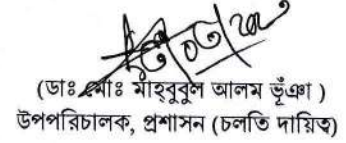 (ডাঃ মোঃ মাহবুবুল আলম ভূঁঞা )
উপপরিচালক, প্রশাসন (চলতি দায়িত্ব)